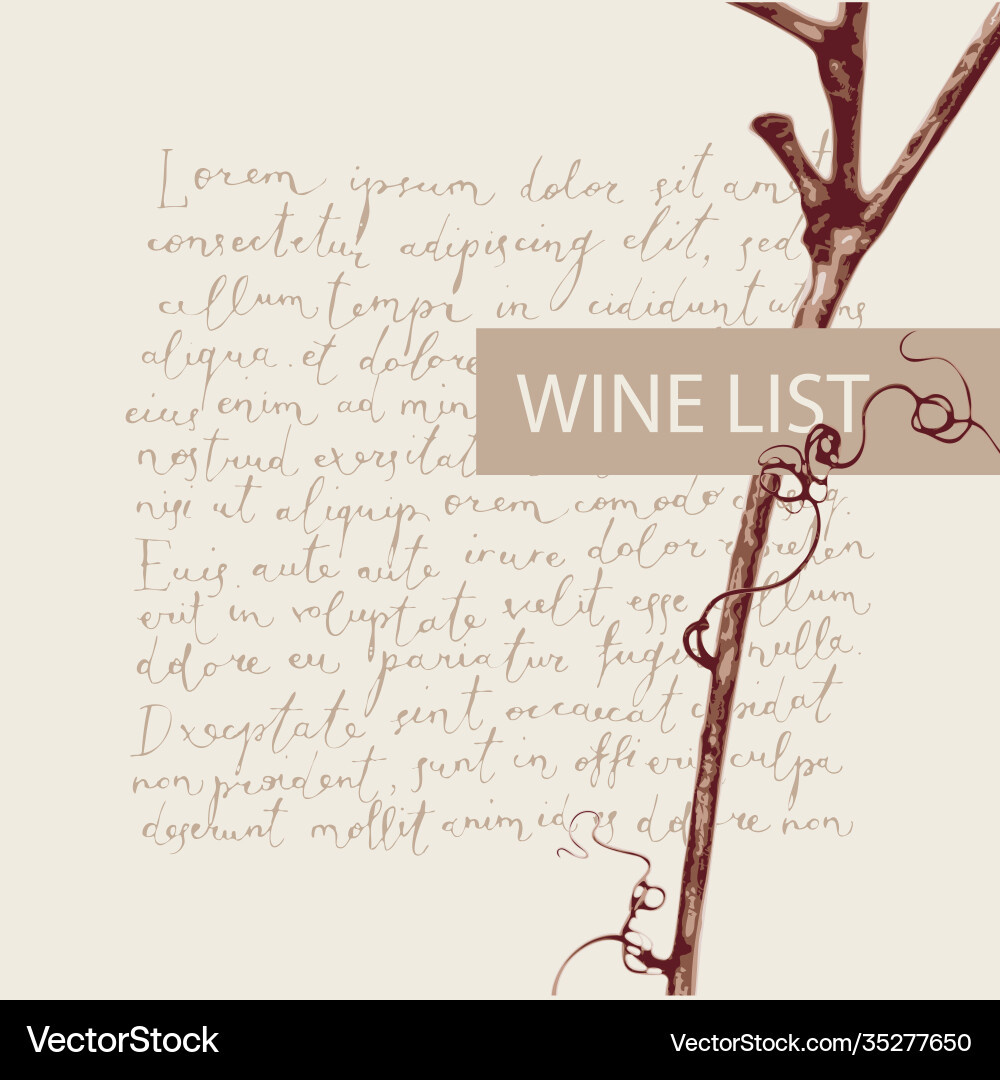 Lorem ipsum dolor sit amet
consectetur adipiscing elit, sed
cillum tempr in cididunt ut ons
aliqua. et dolore
WINE LIST
eius enim ad min
nostrud exersitat
nisi ut aliquip orem comodo
Euis. aute aute irure dolor
erit in voluptate vœlit esse illum
dolore eu pariatur fugi nulla.
Dxecptate sint occaecat c pidat
non proident, sunt in offi eri culpa
deserunt mollit anim id es dolore non
VectorStock
VectorStock.com/35277650